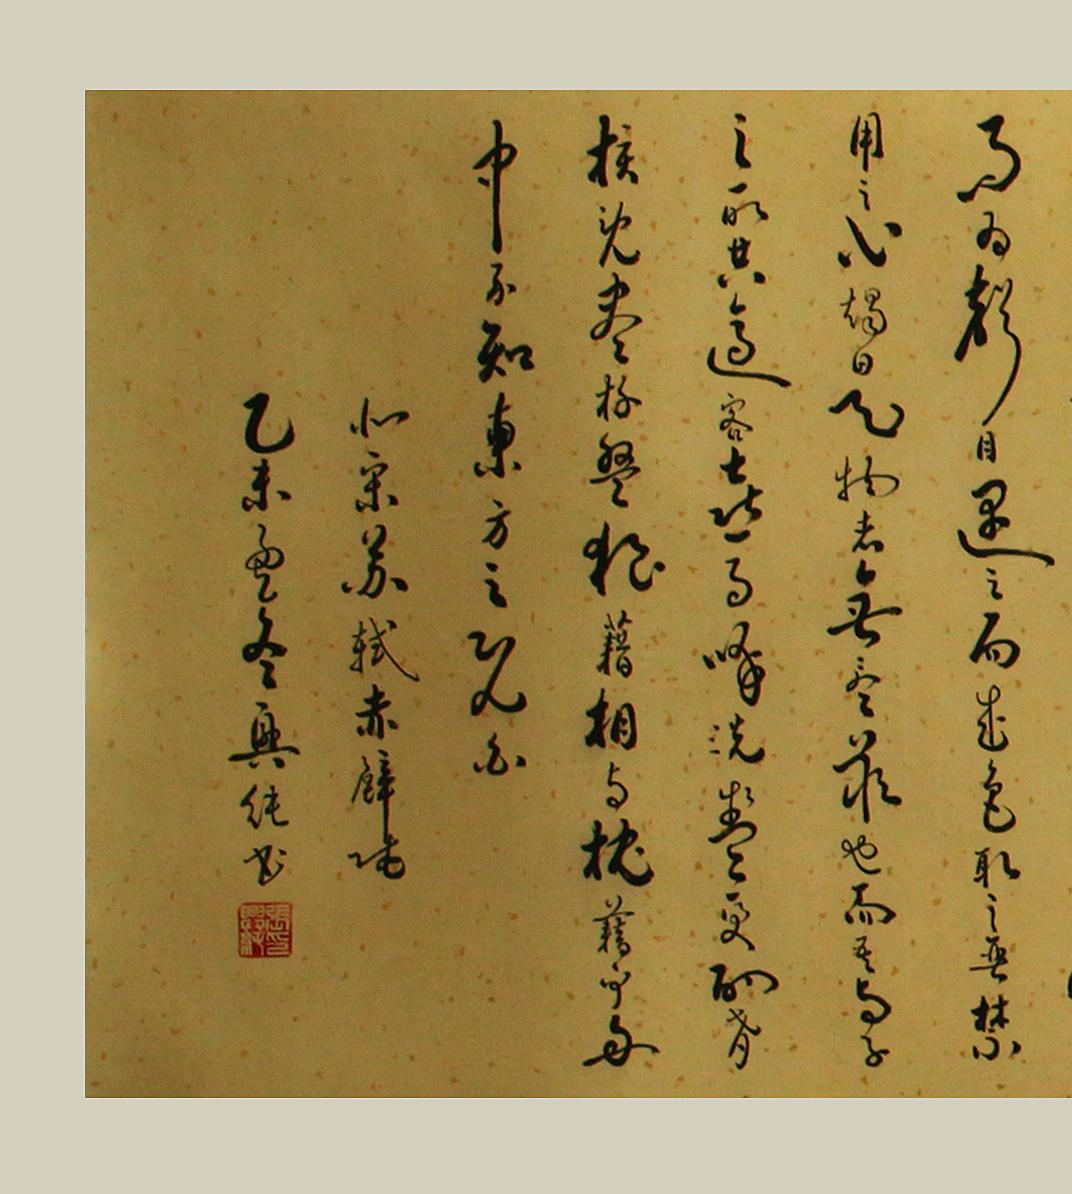 而為聲目遇之而成色取之無禁
用之不竭是物者無盡藏也而吾與子
之所共適客喜而咲洗盞更酌肴
核既盡杯盤狼藉相與枕藉乎舟
中不知東方之既白
北宋蘇軾赤壁賦
乙未孟冬興純書